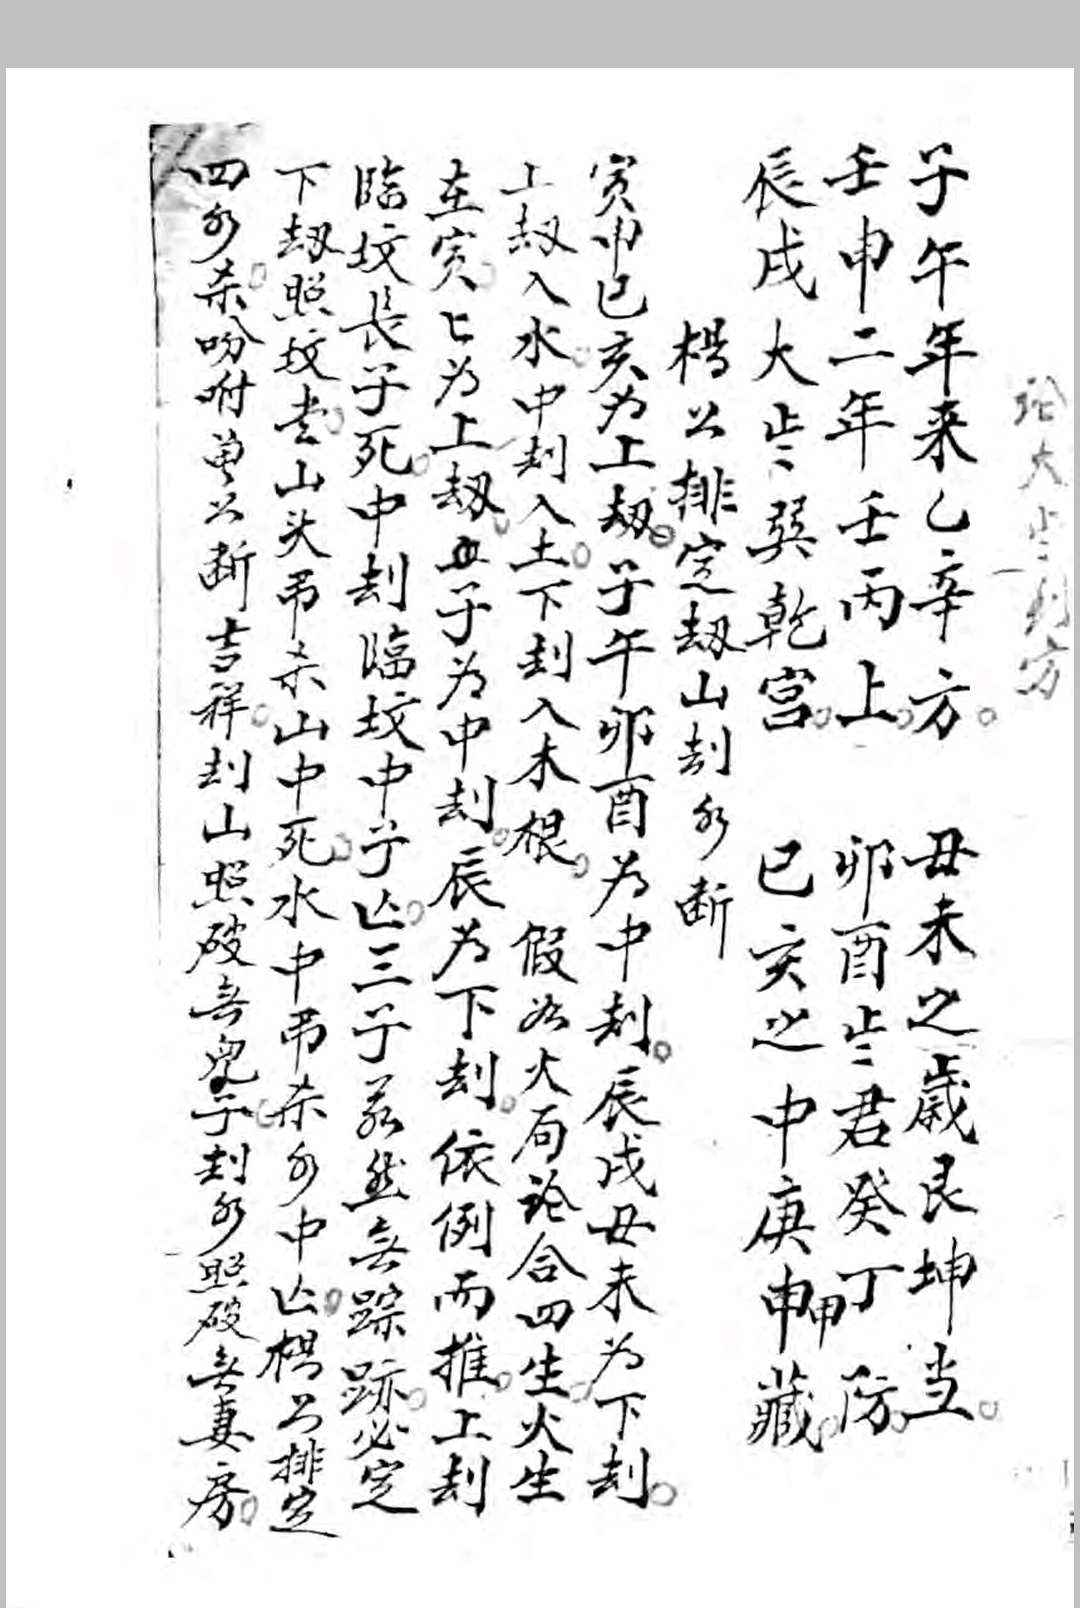 论大
子午年来乙辛方。丑未之歲艮坤当。
壬申二年壬丙上。卯酉年君癸丁防。
辰戌大巽乾宫。巳亥之中庚甲藏。
楊公排定刼山刦水断
寅申巳亥为上刼。子午卯酉为中刦。辰戌丑未为下刦。
上刼入水。中刦入土。下刦入木根。假如火局论合四生火生
在寅。匕为上刼。子为中刦。辰为下刦。依例而推。上刦
临坟長子死。中刦临坟中子亡。三子若然無踪跡。必定
下刼照坟。山头吊杀山中死。水中吊杀水中亡。楊公排定
四水杀。吩咐曽公断吉祥。刦山照破無兒子。刦水照破無妻房。